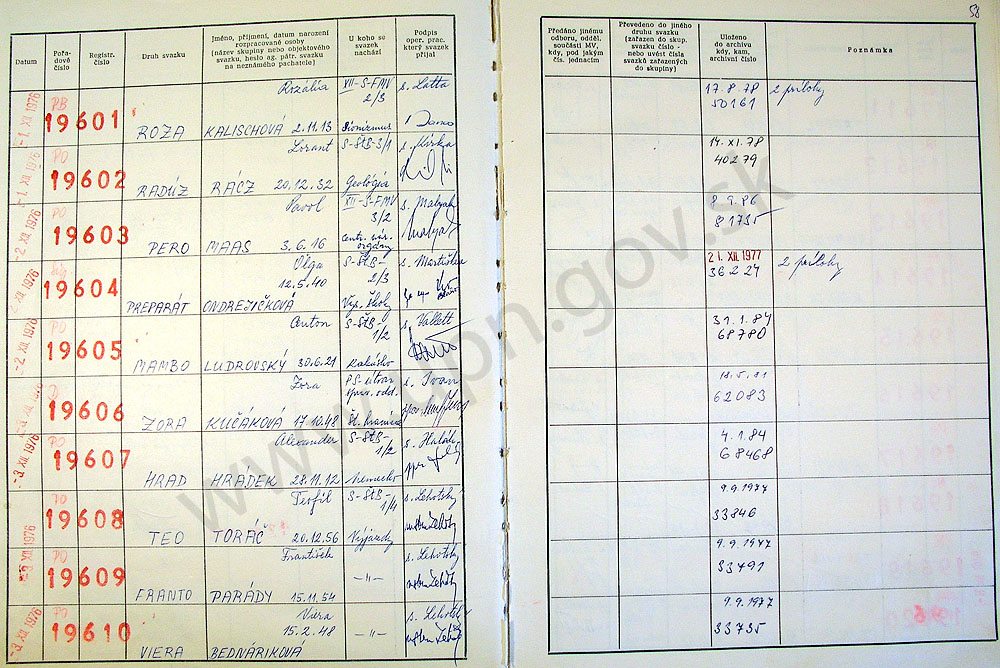 58
Datum
Pořadové číslo
Registr. číslo
Druh svazku
Jméno, příjmení, datum narození rozpracované osoby
(název skupiny nebo objektového svazku, heslo ag. pátr. svazku na neznámého pachatele)
U koho se svazek nachází
Podpis oper. prac. který svazek přijal
Předáno jinému odboru, odděl. součásti MV, kdy, pod jakým čís. jednacím
Převedeno do jiného druhu svazku (zařazen do skup. svazku číslo - nebo uvést čísla svazků zařazených do skupiny)
Uloženo do archivu kdy, kam, archivní číslo
Poznámka
-1. XII. 1976 PB 19601 ROZA KALISCHOVÁ Rozália 2.11.13 XII-S-FMV 2/3 Sionizmus s. Latta
17. 8. 78 50161 2 prílohy
-1. XII. 1976 PO 19602 RADÚZ RÁCZ Lorant 20.12.32 S-ŠtB-3/1 Geológia
14. XI. 78 40279
-2. XII. 1976 PO 19603 PERO MAAS Pavol 3.6.16 XII-S-FMV 3/2 s. Matyak
8. 9. 86 81735
19604 PREPARÁT ONDREJIČKOVÁ Olga 12.5.40 S-ŠtB-2/3 Vys. školy
21. XII. 1977 36224 2 prílohy
-2. XII. 1976 PO 19605 MAMBO LUDROVSKÝ Anton 30.6.21 S-ŠtB-1/2 s. Vallett
31. 1. 84 68780
19606 ZORA KUČÁKOVÁ Zora 17.10.48 PS-útvar Št. hranice s. Ivan
62083
-3. XII. 1976 PO 19607 HRAD HRÁDEK Alexander 28.11.12 S-ŠtB-1/2 Nemecko
4. 1. 84 68468
PO 19608 TEO TORÁČ Teofil 20.12.56 S-ŠtB-1/4 Výjazdy s. Lehotský
9. 9. 1977 33846
PO 19609 FRANTO PARÁDY František 15.11.54 —"— s. Lehotský
9. 9. 1977 33491
PO 19610 VIERA BEDNÁRIKOVÁ Viera 15.2.48 —"— s. Lehotský
9. 9. 1977 33735
www.upn.gov.sk